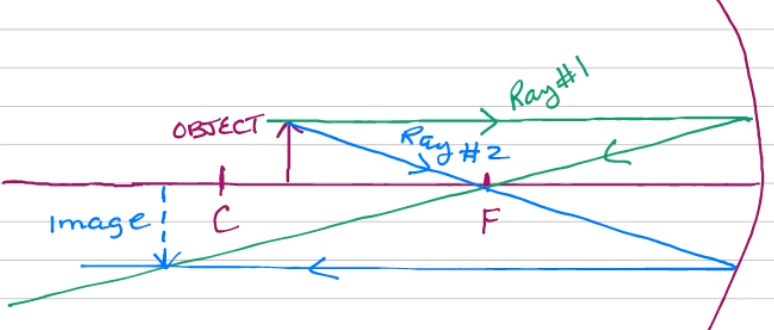 Ray #1
OBJECT
Ray #2
Image
C
F